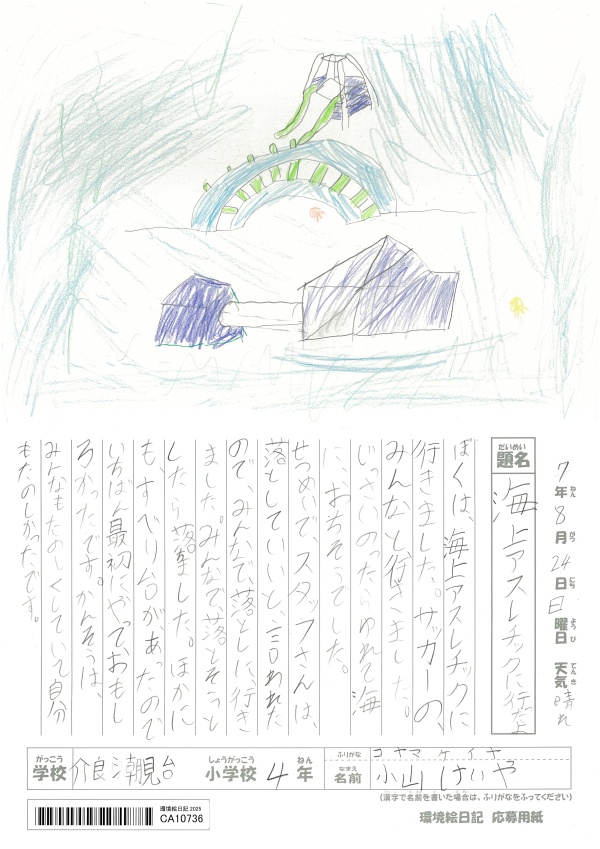 7年8月24日日曜日 天気晴れ
ねん がつ にち ようび てんき
だいめい
題名
海上アスレチックに行たよ
ぼくは、海上アスレチックに
行きました。サッカーの、
みんなと、行きました。
じっさいのったらゆれて海
に、おちそうでした。
せつめいで、スタッフさんは、
落としていいと、言われた
ので、みんなで、落としに、行き
ました。みんなで、落とそっと
したら落ました。ほかに
も、すべり台が、あったので
いちばん最初にやって、おもし
ろかったです。かんそうは、
みんなもたのしくしていて自分
もたのしかったです。
がっこう しょうがっこう ねん
学校 介良潮見台 小学校 4年
ふりがな コヤマ ケイヤ
なまえ
名前 小山 けいや
(漢字で名前を書いた場合は、ふりがなをふってください)
環境絵日記 2025
CA10736
環境絵日記 応募用紙